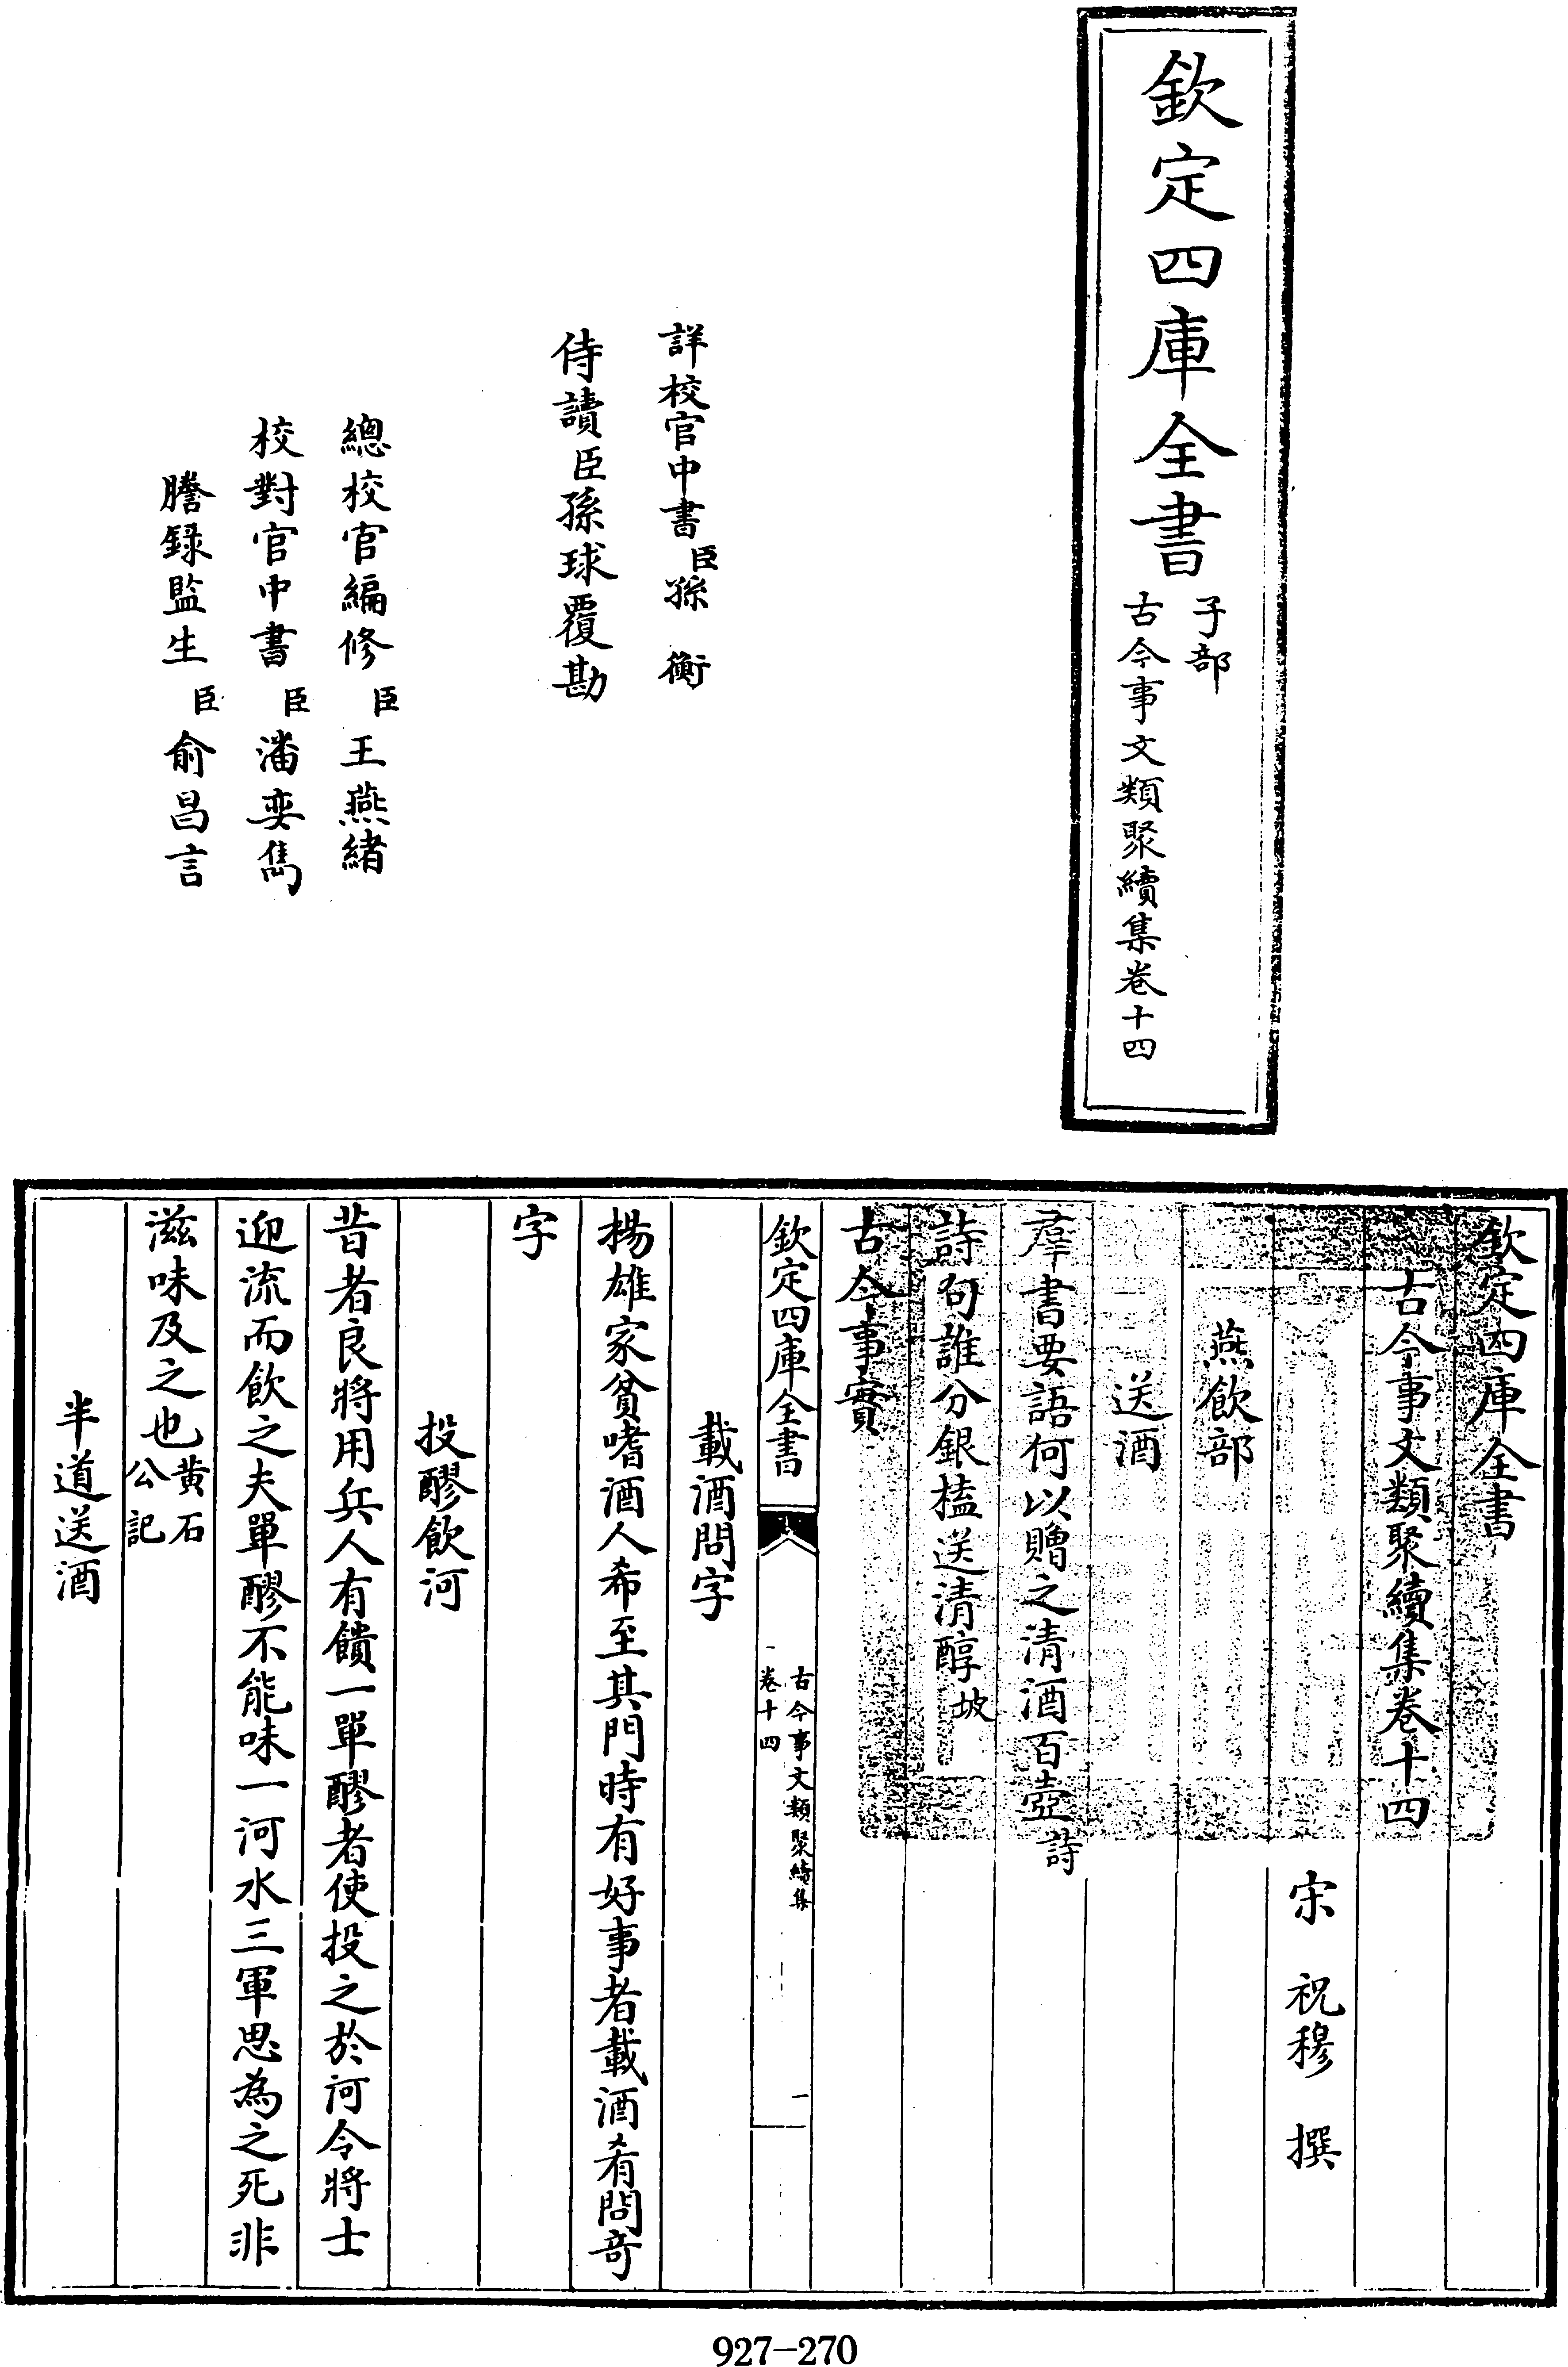 欽定四庫全書
子部
古今事文類聚續集卷十四
詳校官中書臣孫衡
侍讀臣孫球覆勘
總校官編修臣王燕緒
校對官中書臣潘奕雋
謄錄監生臣俞昌言
欽定四庫全書
古今事文類聚續集卷十四
宋 祝穆 撰
燕飲部
送酒
羣書要語何以贈之清酒百壺詩
詩句誰分銀榼送清醇坡
古今事實
欽定四庫全書
古今事文類聚續集
卷十四
一
載酒問字
揚雄家貧嗜酒人希至其門時有好事者載酒肴問奇
字
投醪飲河
昔者良將用兵人有饋一單醪者使投之於河令將士
迎流而飲之夫單醪不能味一河水三軍思為之死非
滋味及之也黄石
公記
半道送酒
927-270